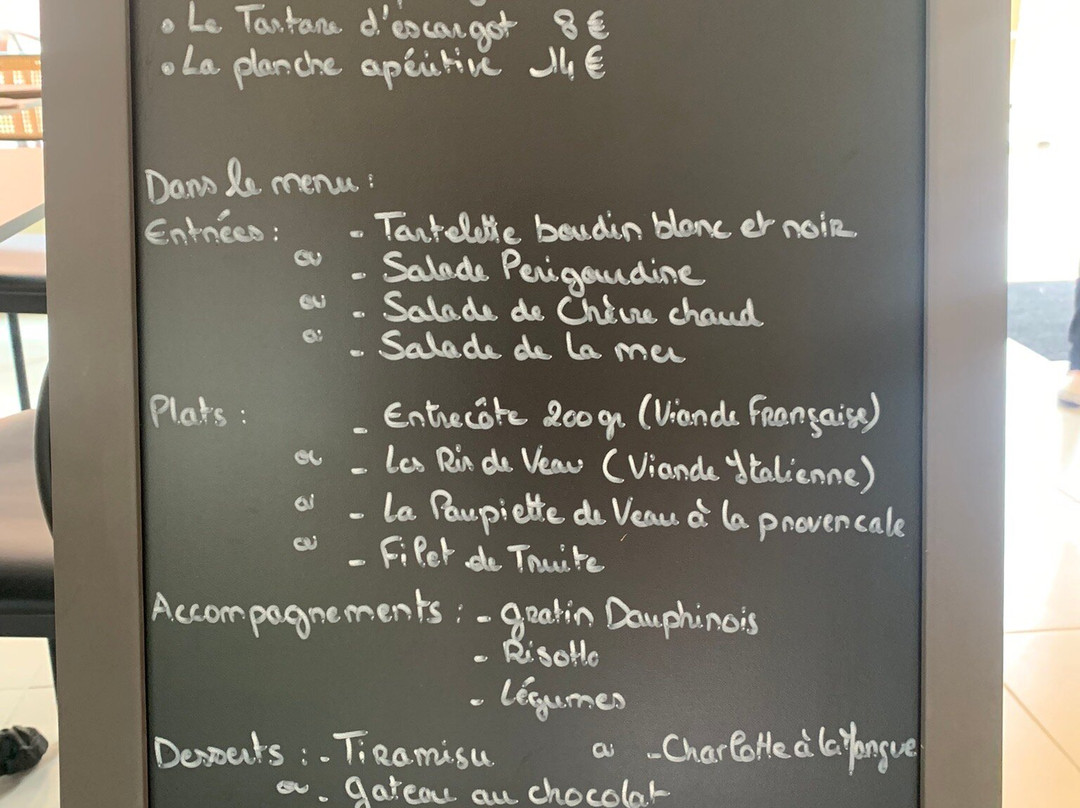 • Le Tartare d'escargot 8 €
• La planche apéritive 14 €
Dans le menu :
Entrées : - Tartelette boudin blanc et noir
ou - Salade Perigourdine
ou - Salade de Chèvre chaud
ou - Salade de la mer
Plats : - Entrecôte 200 gr (Viande Française)
ou - Les Ris de Veau (Viande Italienne)
ou - La Paupiette de Veau à la provencale
ou - Filet de Truite
Accompagnements : - gratin Dauphinois
- Risotto
- Légumes
Desserts : - Tiramisu ou - Charlotte à la Mangue
ou - gateau au chocolat